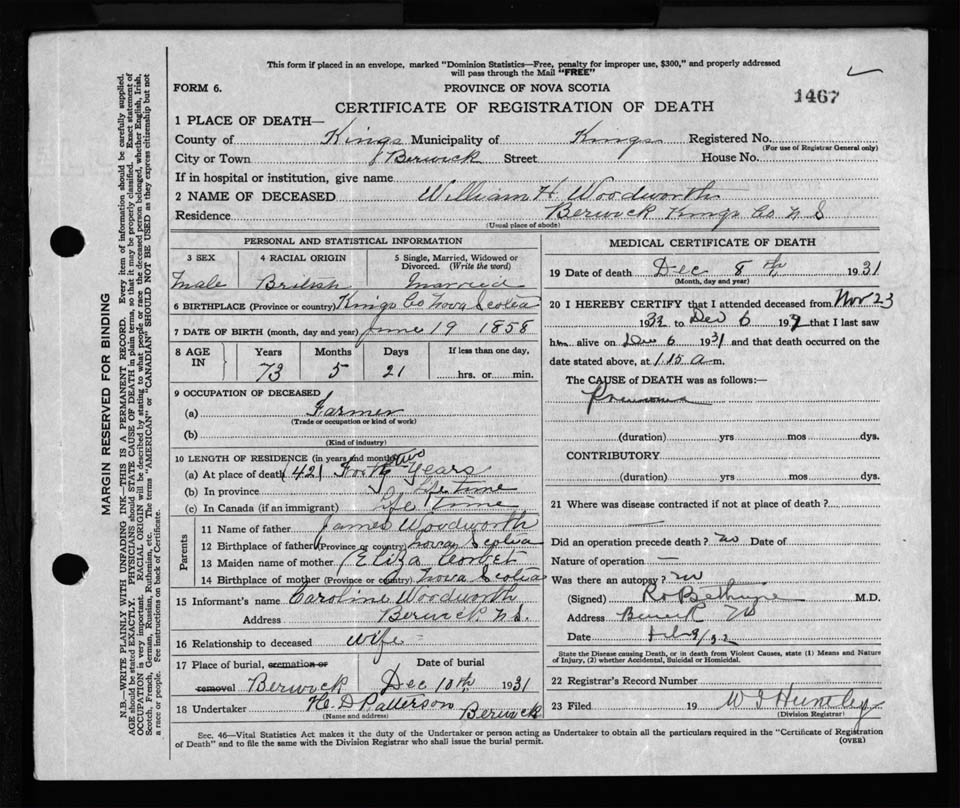 This form if placed in an envelope, marked "Dominion Statistics—Free, penalty for improper use, $300," and properly addressed
will pass through the Mail "FREE"
FORM 6.
PROVINCE OF NOVA SCOTIA
1467
CERTIFICATE OF REGISTRATION OF DEATH
1 PLACE OF DEATH—
County of Kings Municipality of Kings Registered No.
(For use of Registrar General only)
City or Town Berwick Street House No.
If in hospital or institution, give name
2 NAME OF DECEASED William H. Woodworth
Residence Berwick Kings Co N S
(Usual place of abode)
PERSONAL AND STATISTICAL INFORMATION
3 SEX 4 RACIAL ORIGIN 5 Single, Married, Widowed or
Divorced. (Write the word)
Male British Married
6 BIRTHPLACE (Province or country) Kings Co Nova Scotia
7 DATE OF BIRTH (month, day and year) June 19 1858
8 AGE IN Years Months Days If less than one day,
73 5 21 hrs. or min.
9 OCCUPATION OF DECEASED
(a) Farmer
(Trade or occupation or kind of work)
(b)
(Kind of industry)
10 LENGTH OF RESIDENCE (in years and months)
(a) At place of death (42) Forty two Years
(b) In province life time
(c) In Canada (if an immigrant) life time
Parents
11 Name of father James Woodworth
12 Birthplace of father (Province or country) Nova Scotia
13 Maiden name of mother Eliza
14 Birthplace of mother (Province or country) Nova Scotia
15 Informant's name Caroline Woodworth
Address Berwick N.S.
16 Relationship to deceased wife
17 Place of burial, cremation or
removal Berwick
Date of burial
Dec 10th 1931
18 Undertaker H. D Patterson Berwick
(Name and address)
MEDICAL CERTIFICATE OF DEATH
19 Date of death Dec 8th 1931
(Month, day and year)
20 I HEREBY CERTIFY that I attended deceased from Nov 23
to Dec 6 that I last saw
him alive on Dec 6 1931 and that death occurred on the
date stated above, at 1.15 a m.
The CAUSE of DEATH was as follows:—
Pneumonia
(duration) yrs mos dys.
CONTRIBUTORY
(duration) yrs mos dys.
21 Where was disease contracted if not at place of death?
Did an operation precede death? no Date of
Nature of operation —
Was there an autopsy? no
(Signed) M.D.
Address
Date
State the Disease causing Death, or in death from Violent Causes, state (1) Means and Nature
of Injury, (2) whether Accidental, Suicidal or Homicidal.
22 Registrar's Record Number
23 Filed 19 Huntley
(Division Registrar)
Sec. 46—Vital Statistics Act makes it the duty of the Undertaker or person acting as Undertaker to obtain all the particulars required in the "Certificate of Registration
of Death" and to file the same with the Division Registrar who shall issue the burial permit.
(OVER)
MARGIN RESERVED FOR BINDING
N.B.—WRITE PLAINLY WITH UNFADING INK—THIS IS A PERMANENT RECORD. Every item of information should be carefully supplied.
AGE should be stated EXACTLY. PHYSICIANS should STATE CAUSE OF DEATH in plain terms, so that it may be properly classified. Exact statement of
OCCUPATION is very important. RACIAL ORIGIN will be described by stating to what people or race the deceased person belonged, whether English, Irish,
Scotch, French, German, Russian, Ruthenian, etc. The terms "AMERICAN" or "CANADIAN" SHOULD NOT BE USED as they express citizenship but not
a race or people. Fee instructions on back of Certificate.